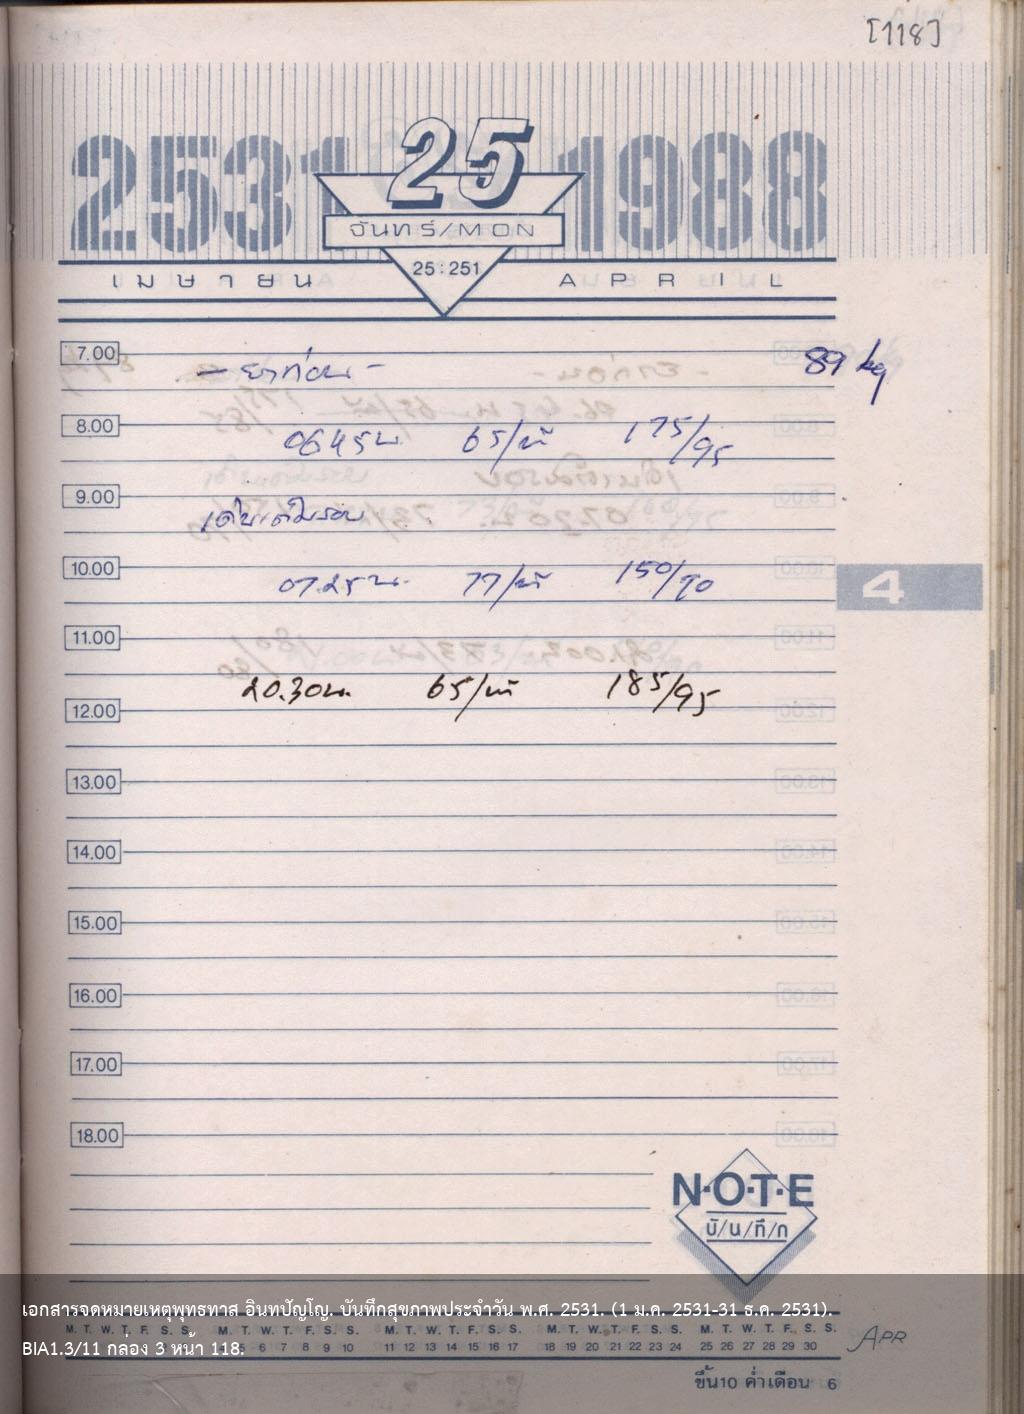 [118]
2531 25 1988
จันทร์/MON
25:251
เมษายน APRIL
7.00 89 kg
- ยาก่อน -
8.00
0645น. 65/นที 175/95
9.00
เดินเต็มรอบ
10.00
07.25น. 77/นที 150/90
4
11.00
20.30น. 65/นที 185/95
12.00
13.00
14.00
15.00
16.00
17.00
18.00
N·O·T·E
บั/น/ทึ/ก
เอกสารจดหมายเหตุพุทธทาส อินทปัญโญ. บันทึกสุขภาพประจำวัน พ.ศ. 2531. (1 ม.ค. 2531-31 ธ.ค. 2531).
M. T. W. T. F. S. S. M. T. W. T. F. S. S. M. T. W. T. F. S. S. M. T. W. T. F. S. S. M. T. W. T. F. S. S.
BIA1.3/11 กล่อง 3 หน้า 118.
5 6 7 8 9 10 11 12 13 14 15 16 17 18 19 20 21 22 23 24 25 26 27 28 29 30 APR
ขึ้น10 ค่ำเดือน 6